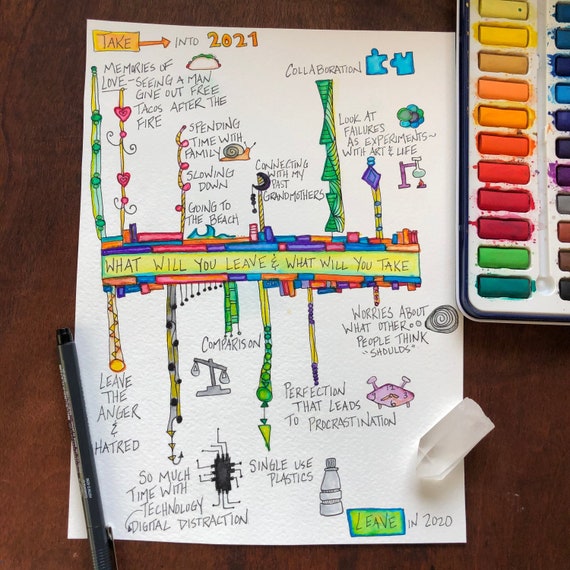 TAKE INTO 2021
MEMORIES OF
LOVE - SEEING A MAN
GIVE OUT FREE
TACOS AFTER THE
FIRE
SPENDING
TIME WITH
FAMILY
SLOWING
DOWN
GOING TO
THE BEACH
CONNECTING
WITH MY
PAST
GRANDMOTHERS
COLLABORATION
LOOK AT
FAILURES
AS EXPERIMENTS~
WITH ART & LIFE
WHAT WILL YOU LEAVE & WHAT WILL YOU TAKE
LEAVE
THE
ANGER
&
HATRED
SO MUCH
TIME WITH
TECHNOLOGY
DIGITAL DISTRACTION
COMPARISON
SINGLE USE
PLASTICS
PERFECTION
THAT LEADS
TO PROCRASTINATION
WORRIES ABOUT
WHAT OTHER
PEOPLE THINK
"SHOULDS"
LEAVE IN 2020